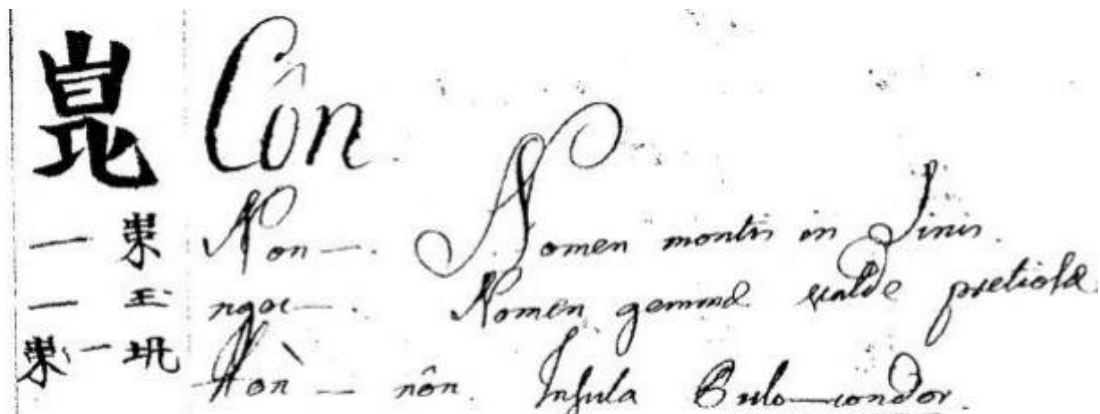 崑 Côn.
— Non —. Nomen montis in Sinis.
— 玉 ngọc —. Nomen gemmæ valde pretioſæ.
— Hòn — nôn. Inſula Pulo-condor.